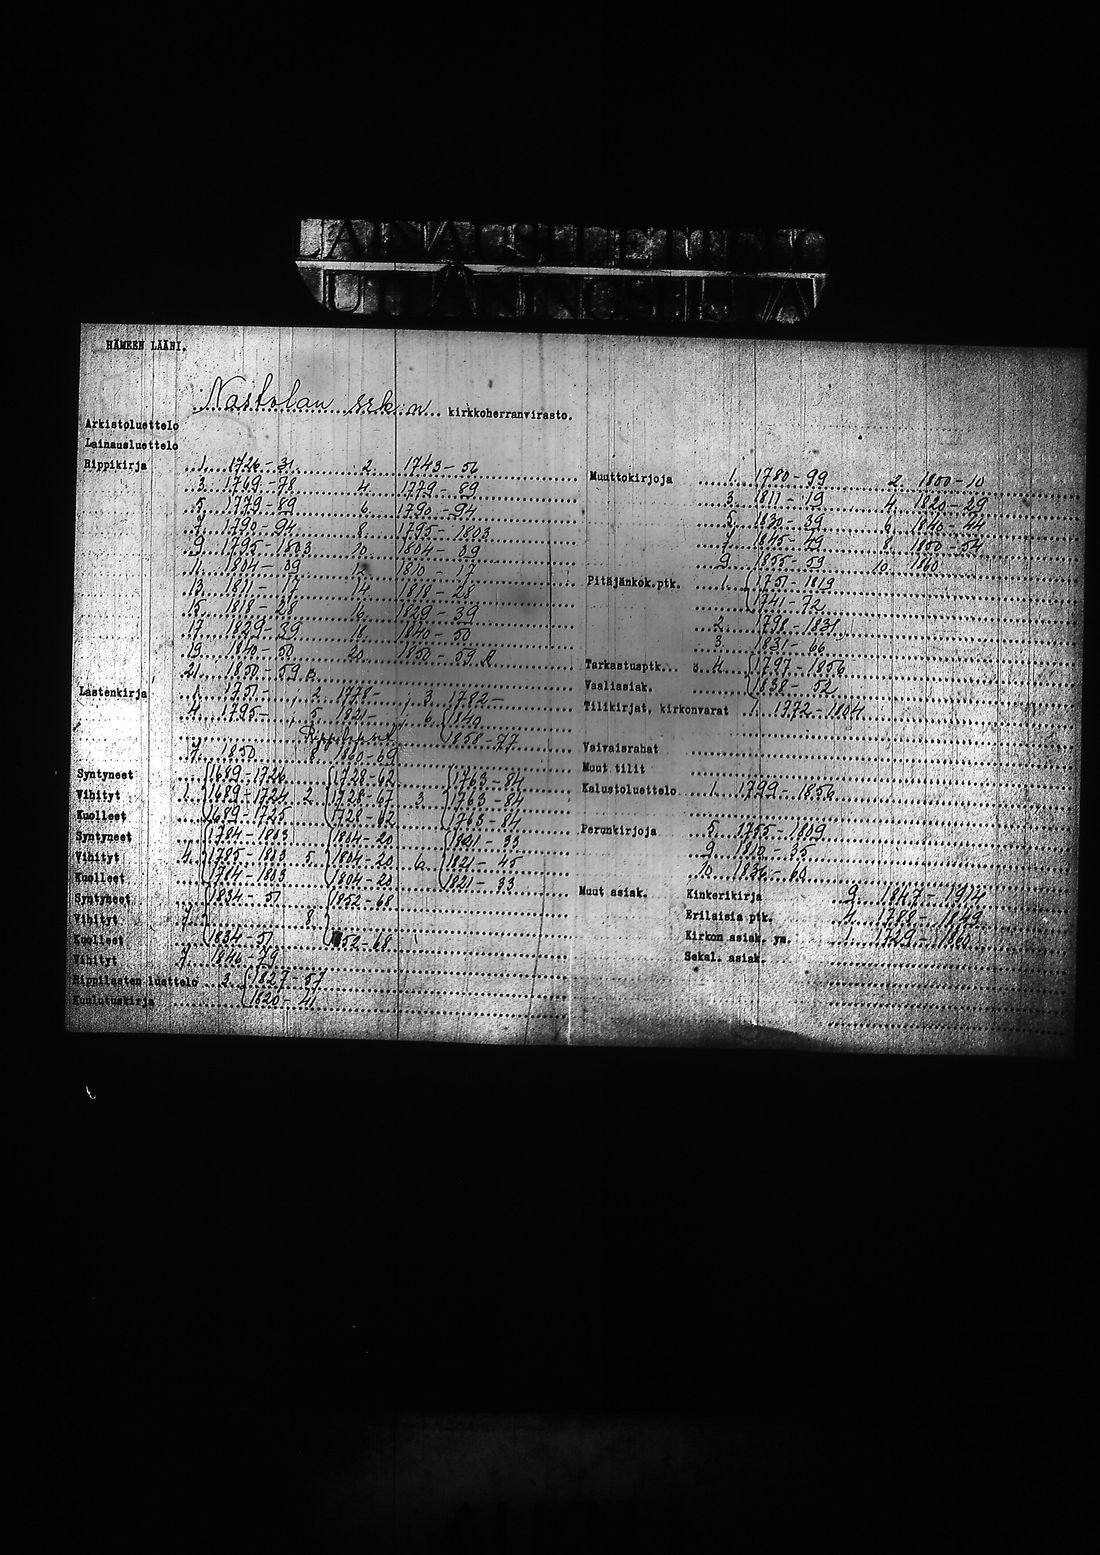 LAINAUSLUETTELO
UTLÅNINGSLISTA
HÄMEEN LÄÄNI.
Nastolan srk:n kirkkoherranvirasto.
Arkistoluettelo
Lainausluettelo
Rippikirja 1. 1726-31 2. 1743-56
3. 1769-78 4. 1779-89
5. 1779-89 6. 1790-94
7. 1790-94 8. 1795-1803
9. 1795-1803 10. 1804-09
11. 1804-09 12. 1810-17
13. 1811-17 14. 1818-28
15. 1818-28 16. 1829-39
17. 1829-39 18. 1840-50
19. 1840-50 20. 1850-59 A
21. 1850-59 B
Lastenkirja 1. 1751- , 2. 1778- , 3. 1782-
4. 1795- , 5. 1821- , 6. 1840
1858-77
7. 1850 8. 1860-69
Syntyneet 1689-1726 1728-62 1763-84
Vihityt 1. 1689-1724 2. 1728-67 3. 1763-84
Kuolleet 1689-1725 1728-62 1763-84
Syntyneet 1784-1803 1804-20 1821-33
Vihityt 4. 1785-1803 5. 1804-20 6. 1821-45
Kuolleet 1784-1803 1804-20 1821-33
Syntyneet 1834-51 1852-68
Vihityt 7. 8.
Kuolleet 1834-51 1852-68
Vihityt 7. 1846-79
Rippilasten luettelo 3. 1827-57
Kuulutuskirja 1820-41
Muuttokirjoja 1. 1780-99 2. 1800-10
3. 1811-19 4. 1820-29
5. 1830-39 6. 1840-44
7. 1845-49 8. 1850-54
9. 1855-59 10. 1860
Pitäjänkok.ptk. 1. 1751-1819
1741-72
2. 1798-1831
3. 1831-66
Tarkastusptk. 4. 1797-1856
Vaaliasiak. 1838-52
Tilikirjat, kirkonvarat 1. 1772-1804
Vaivaisrahat
Muut tilit
Kalustoluettelo 1. 1799-1856
Perunkirjoja 5. 1755-1809
9. 1810-35
10. 1836-60
Muut asiak. Kinkerikirja 9. 1847-1914
Erilaisia ptk. 4. 1788-1849
Kirkon asiak. ym. 1. 1729-1860
Sekal. asiak.